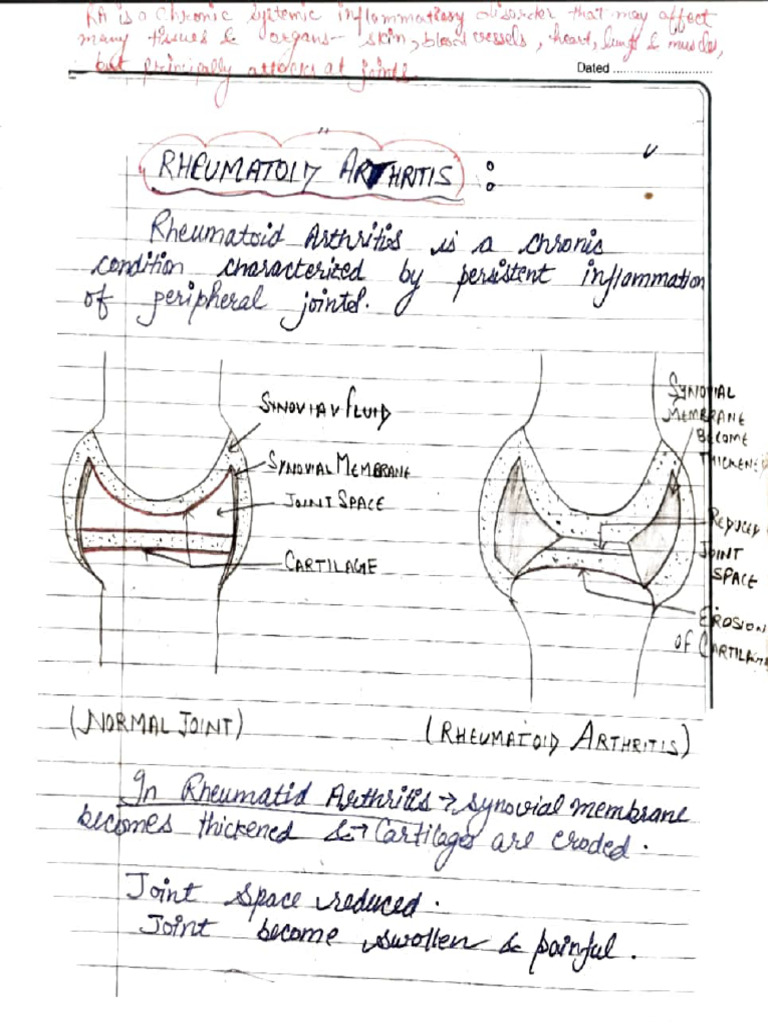 RA is a chronic systemic inflammatory disorder that may affect
many tissues & organs - skin, blood vessels, heart, lungs & muscles,
but principally attacks at joints.
Dated
RHEUMATOID ARTHRITIS :
Rheumatoid Arthritis is a chronic
condition characterized by persistent inflammation
of peripheral joints.
SYNOVIAL FLUID
SYNOVIAL MEMBRANE
JOINT SPACE
CARTILAGE
SYNOVIAL
MEMBRANE
BECOME
THICKENE
REDUCED
JOINT
SPACE
EROSION
OF CARTILAGE
(NORMAL JOINT)
(RHEUMATOID ARTHRITIS)
In Rheumatid Arthritis → synovial membrane
becomes thickened & → Cartilages are eroded.
Joint space reduced.
Joint become swollen & painful.